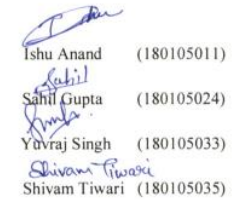 Ishu
Ishu Anand (180105011)
Sahil
Sahil Gupta (180105024)
Yuvraj Singh (180105033)
Shivam Tiwari
Shivam Tiwari (180105035)